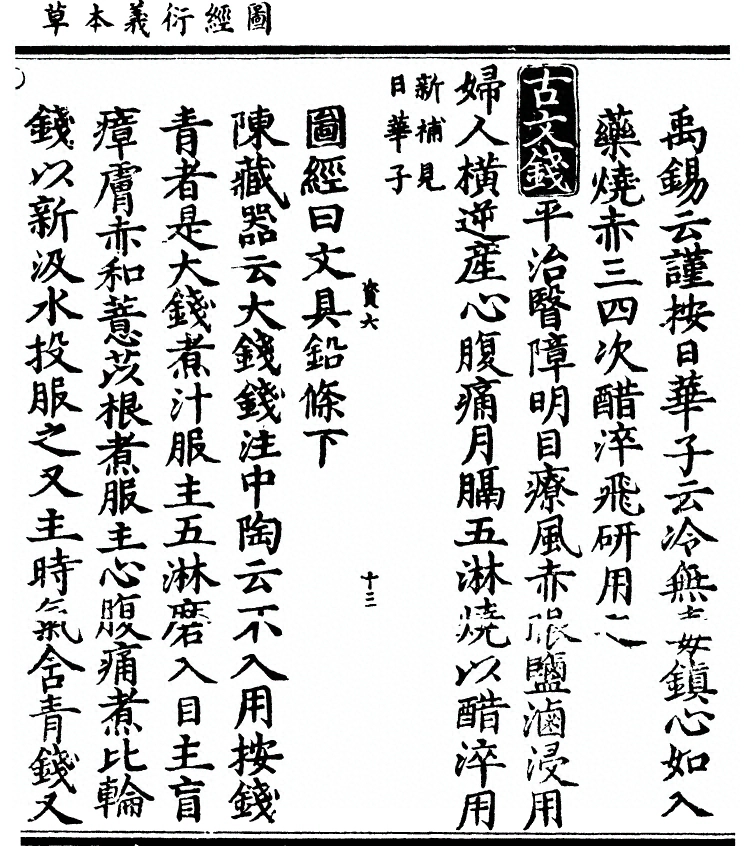 圖經衍義本草
禹錫云謹按日華子云冷無毒鎮心如入
藥燒赤三四次醋淬飛研用之
古文錢平治瞖障明目療風赤眼鹽滷浸用
婦人橫逆産心腹痛月膈五淋燒以醋淬用
新補見
日華子
資六
十二
圖經曰文具鉛條下
陳藏器云大錢錢注中陶云不入用按錢
青者是大錢煮汁服主五淋磨入目主盲
瘴膚赤和薏苡根煮服主心腹痛煮比輪
錢以新汲水投服之又主時氣含青錢又